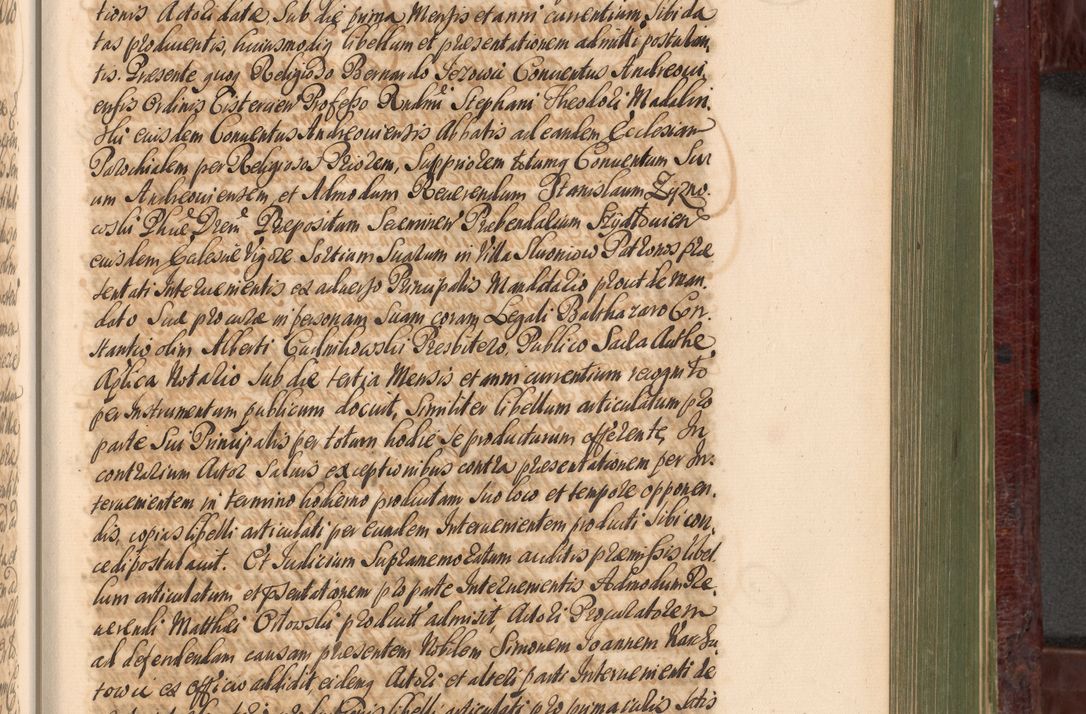 tionis Actori datæ Sub die prima Mensis et anni currentium Sibi da
tas producentis, huiusmodiq libellum et præsentationem admitti postulan,
tis. Præsente quoq Religioso Bernardo Jezowic Conventus Andreovi
ensis Ordinis Cistercien Professo Rndmi Stephani Theodori Madalin
ski eiusdem Conventus Andreoviensis Abbatis ad eandem Ecclesiam
Parochialem per Religiosos Priorem, Suppriorem totumq Conventum Su
um Andreoviensem, et Admodum Reverendum Stanislaum
Præpositum Præbendarium
eiusdem Ecclesiæ Vigore Sortium Suarum in Villa Patronos præ
sentati Intervenientis ex adverso Principalis Mandatario prout de man,
dato Suæ procuræ in personam Suam coram Legali Balthazaro Con,
stantio olim Alberti Presbitero, Publico Sacra Authe
Aplica Notario Sub die tertia Mensis et anni currentium recognito
per Instrumentum publicum docuit, Similiter libellum articulatum pro
parte Sui Principalis per totum hodie se producturum offerente, In
contrarium Actor Salvis exceptionibus contra præsentationem per In,
tervenientem in termino hodierno productam Suo loco et tempore opponen,
dis, copias libelli articulati per eundem Intervenientem producti Sibi con,
cedi postulavit. Et Judicium Supramemoratum auditis præmissis libel
lum articulatum et psentationem pro parte Intervenientis Admodum Re
verendi Matthæi Orlowski product admisit, Actori Procuratorem
ad defendendam causam præsentem Noblem Simonem Joannem
towic ex officio addidit, eidemq Actori et alteri parti Intervenienti de
libelli articulati pro prima iuris Satis